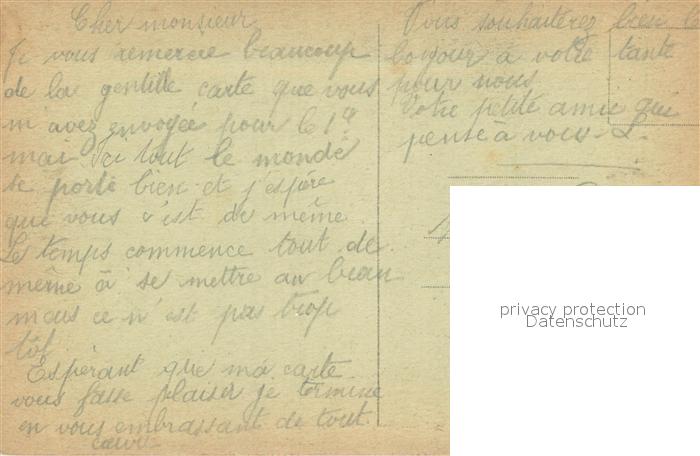 Cher monsieur
Je vous remercie beaucoup
de la gentille carte que vous
m'avez envoyée pour le 1er
mai Ici tout le monde
se porte bien et j'espère
que vous c'est de même
Le temps commence tout de
même à se mettre au beau
mais ce n'est pas trop
tôt
Espérant que ma carte
vous fasse plaisir je termine
en vous embrassant de tout
cœur
Vous souhaiterez bien le
bonjour à votre tante
pour nous
Votre petite amie qui
pense à vous L.
privacy protection
Datenschutz